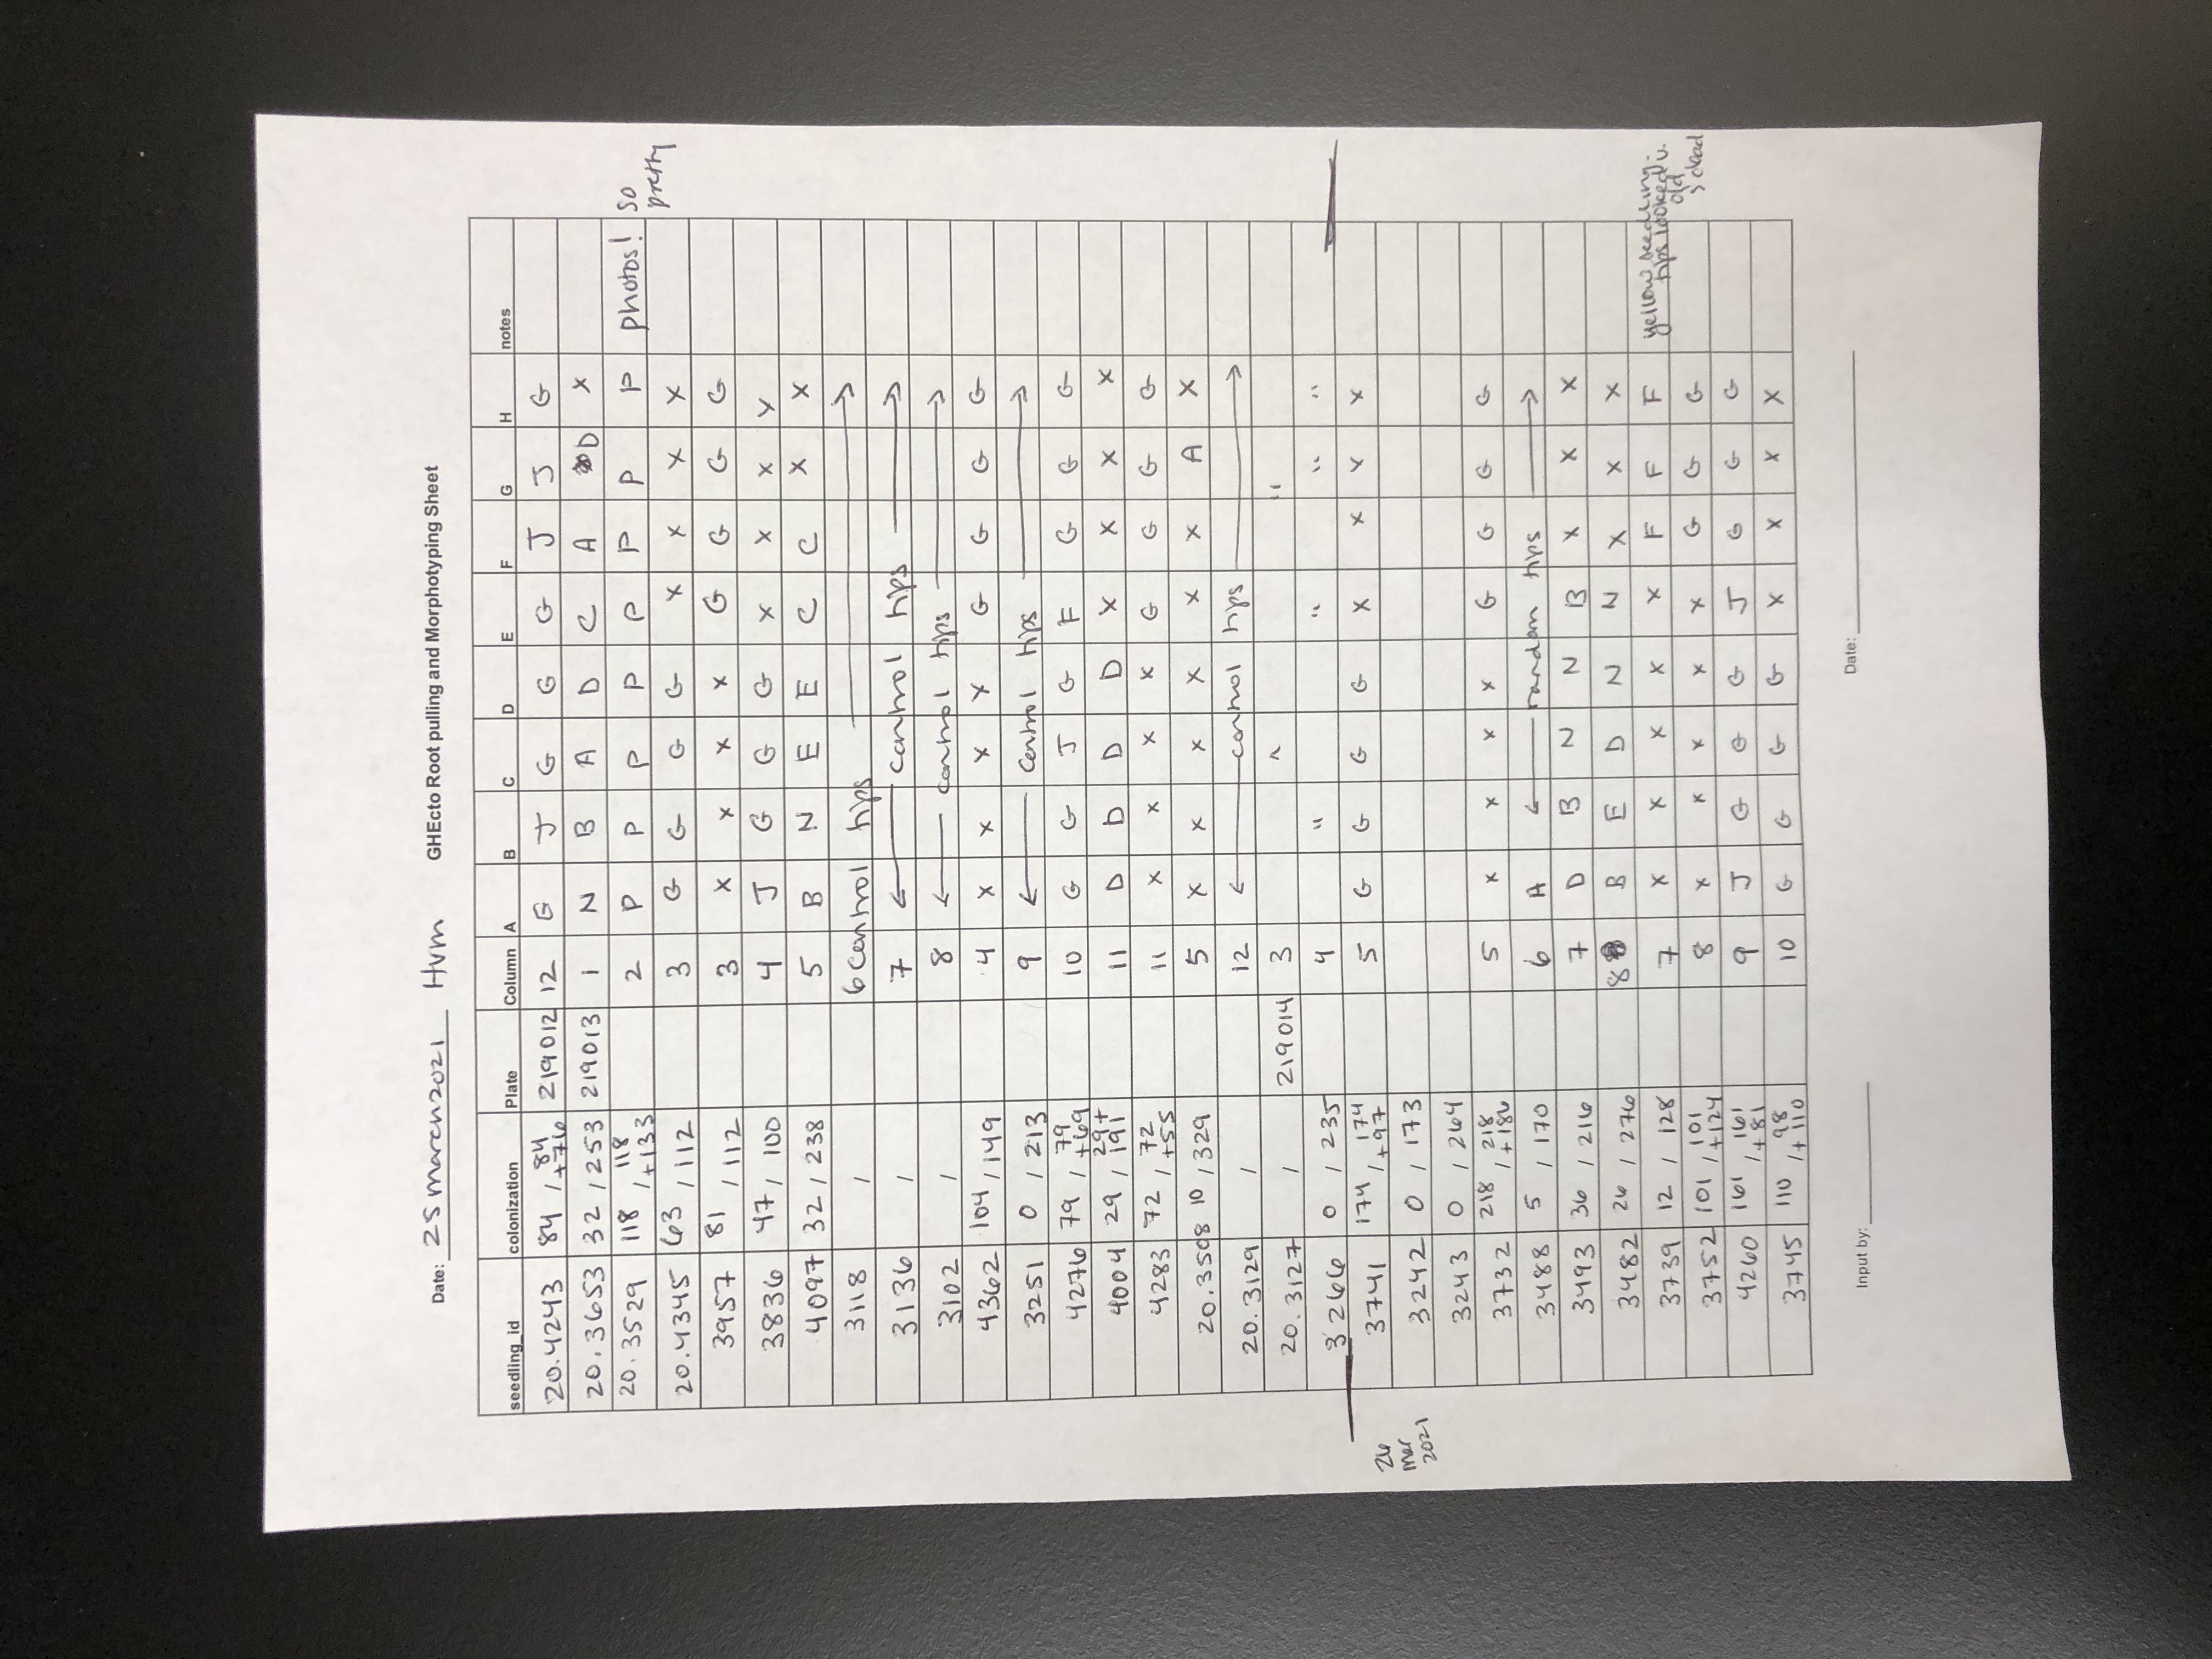 Date: 25 march 2021 Hvm GHEcto Root pulling and Morphotyping Sheet
seedling_id colonization Plate Column A B C D E F G H notes
20.4243 84 / 84 +76 219012 12 G J G G G J J G
20.3653 32 / 253 219013 1 N B A D C A D X
20.3529 118 / 118 +133 2 P P P P P P P P photos! so pretty
20.4345 63 / 112 3 G G G G X X X X
3957 81 / 112 3 X X X X G G G G
3836 47 / 100 4 J G G G X X X X
4097 32 / 238 5 B N E E C C X X
3118 / 6 control tips →
3136 / 7 ← control tips →
3102 / 8 ← control tips →
4362 104 / 149 4 X X X X G G G G
3251 0 / 213 9 ← control tips →
4276 79 / 79 +69 10 G G J G F G G G
4004 29 / 29+ 191 11 D D D D X X X X
4283 72 / 72 +55 11 X X X X G G G G
20.3508 10 / 329 5 X X X X X X A X
20.3129 / 12 ← control tips →
20.3127 / 219014 3 " "
3266 0 / 235 4 " " " "
26 mar 2021
3741 174 / 174 +97 5 G G G G X X X X
3242 0 / 173
3243 0 / 264
3732 218 / 218 +186 5 X X X X G G G G
3488 5 / 170 6 A ← random tips →
3493 36 / 216 7 D B N N B X X X
3482 26 / 276 8 B E D N N X X X
3739 12 / 128 7 X X X X X F F F yellow seedling. tips looked v. old & dead
3752 101 / 101 +124 8 X X X X X G G G
4260 161 / 161 +81 9 J G G G J G G G
3745 110 / 98 +110 10 G G G G X X X X
Input by: Date: